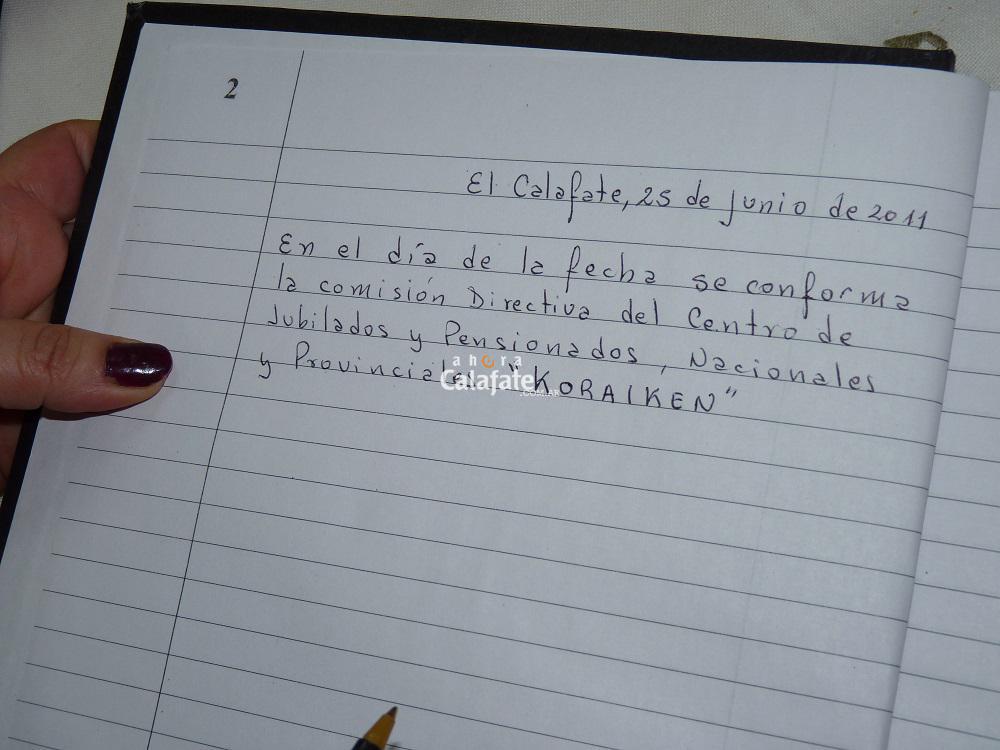 2
El Calafate, 25 de junio de 2011
En el día de la fecha se conforma
la comisión Directiva del Centro de
Jubilados y Pensionados, Nacionales
y Provinciales "KORAIKEN"
ahora
Calafate
.COM.AR